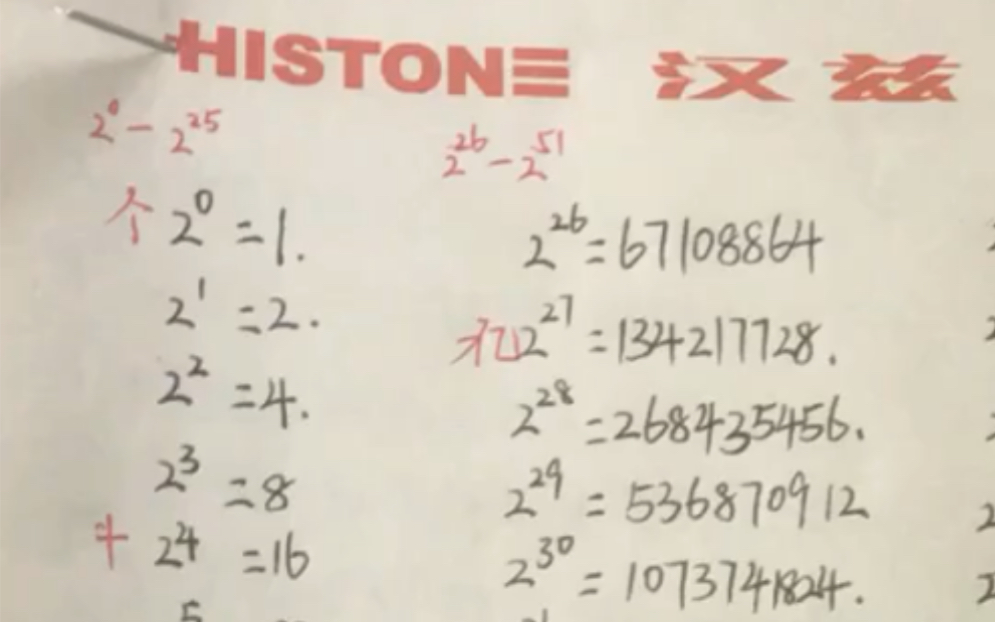 HISTONE 汉兹
2⁰ - 2²⁵
个 2⁰ = 1.
2¹ = 2.
2² = 4.
2³ = 8
十 2⁴ = 16
2²⁶ - 2⁵¹
2²⁶ = 67108864
亿 2²⁷ = 134217728.
2²⁸ = 268435456.
2²⁹ = 536870912
2³⁰ = 1073741824.